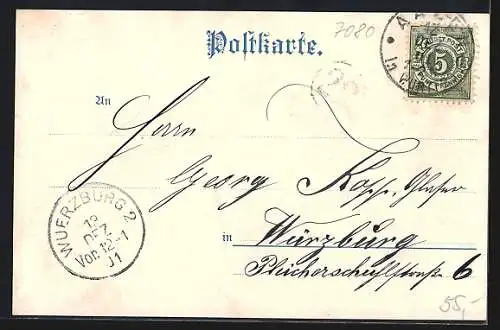 7080
Postkarte.
5
An
Herrn
Georg Kopp, Glaser
in Würzburg
Pleicherschulstraße 6
WUERZBURG 2
13
DEZ
Vor. 12-1
J1
55,-